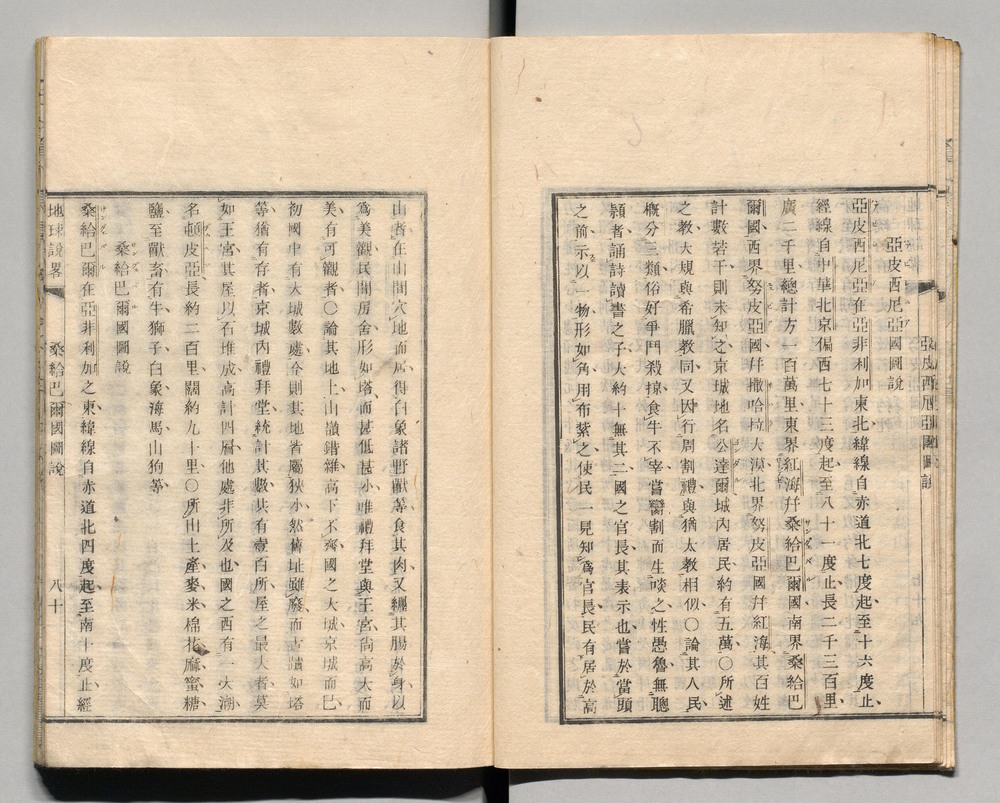 亞皮西尼亞國圖說
亞皮西尼亞國圖說
亞皮西尼亞在亞非利加東北緯線自赤道北七度起至十六度止
經線自中華北京偏西七十三度起至八十一度止長二千三百里
廣二千里總計方一百萬里東界紅海幷桑給巴爾國南界桑給巴
爾國西界努皮亞國幷撒哈拉大漠北界努皮亞國幷紅海其百姓
計數若干則未知之京城地名公達爾城內居民約有五萬〇所述
之教大規與希臘教同又因行周割禮與猶太教相似〇論其人民
槪分三類俗好爭鬥殺掠食牛不宰嘗臠割而生啖之性愚魯無聰
頴者誦詩讀書之子大約十無其二國之官長其表示也嘗於當頭
之前示以一物形如角用布紮之使民一見知爲官長民有居於高
山者在山間穴地而居得白象諸野獸等食其肉又纏其腸於身以
爲美觀民間房舍形如塔而甚低甚小唯禮拜堂與王宮尙高大而
美有可觀者〇論其地土山嶺錯雜高下不齊國之大城京城而已
初國中有大城數處今則其地皆屬狹小然舊址雖廢而古蹟如塔
等猶有存者京城內禮拜堂統計其數共有壹百所屋之最大者莫
如王宮其屋以石堆成高計四層他處非所及也國之西有一大湖
名頓皮亞長約二百里闊約九十里〇所出土產麥米棉花麻蜜糖
鹽至獸畜有牛獅子白象海馬山狗等
桑給巴爾國圖說
桑給巴爾在亞非利加之東緯線自赤道北四度起至南十度止經
地球說畧 桑給巴爾國圖說 八十